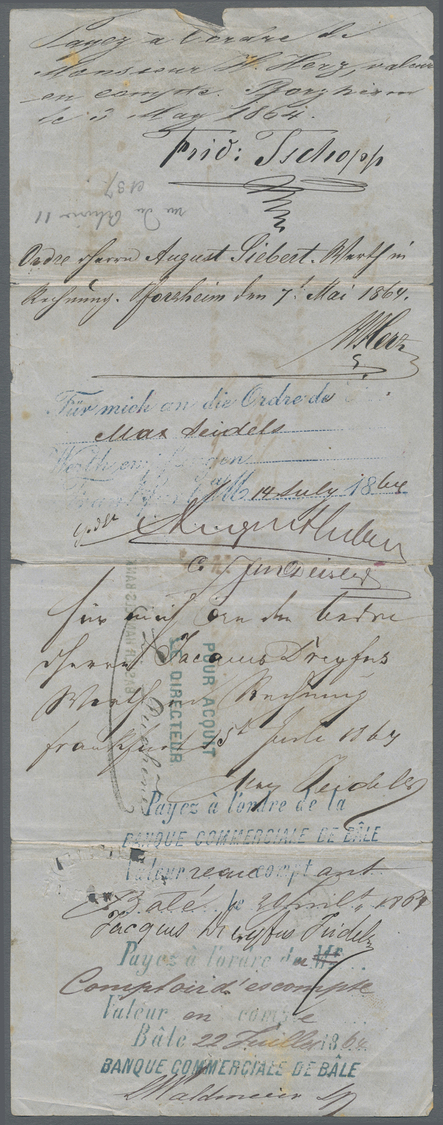 Payez à l'ordre de
Monsieur W. Herz, valeur
en compte. Pforzheim
le 3 May 1864.
Frid: Tschopp
11
Ordre Herrn August Siebert. Werth in
Rechnung. Pforzheim den 7t Mai 1864.
WHerz
Für mich an die Ordre de
Max Seidels
14 July 1864
Für mich an die Ordre
Herrn Jacques Dreyfus
Werth in Rechnung
Frankfurt 15t Juli 1864
Max Seidels
POUR ACQUIT
LE DIRECTEUR
Payez à l'ordre de la
BANQUE COMMERCIALE DE BÂLE
Valeur comptant
Bâle le 1864
Jacques Dreyfus
Payez à l'ordre du
Comptoir d'escompte
Valeur en compte
Bâle 22 Juillet 1864
BANQUE COMMERCIALE DE BÂLE